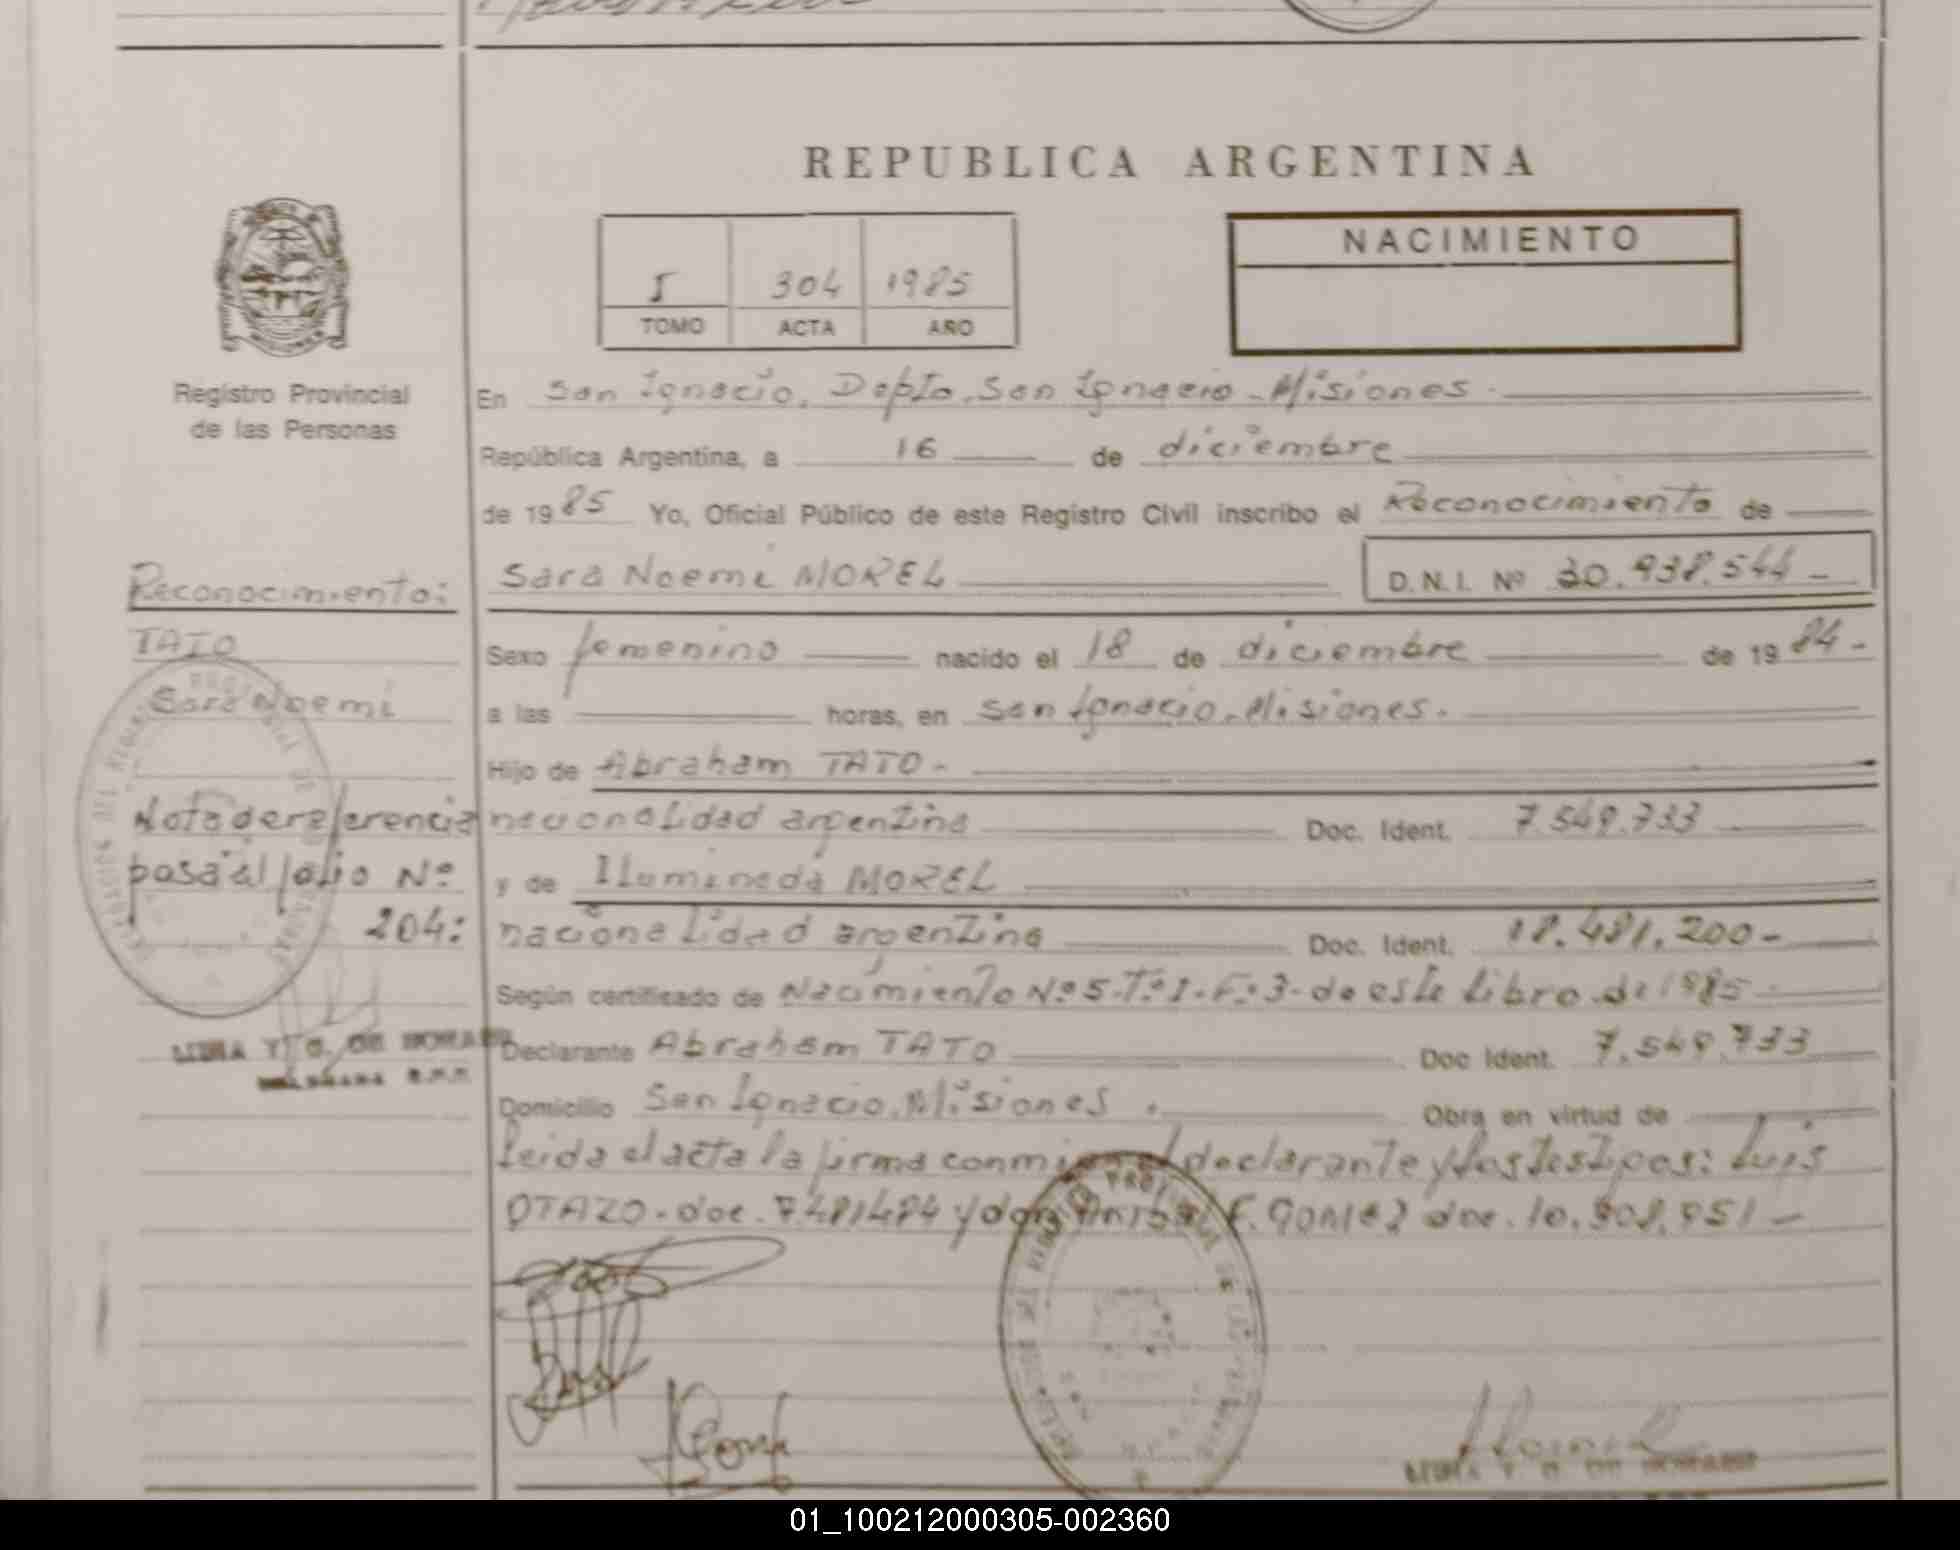 REPUBLICA ARGENTINA
I 304 1985
TOMO ACTA AÑO
NACIMIENTO
Registro Provincial
de las Personas
En San Ignacio, Depto. San Ignacio - Misiones.
República Argentina, a 16 de diciembre
de 1985 Yo, Oficial Público de este Registro Civil inscribo el Reconocimiento de
Sara Noemi MOREL D.N.I. Nº 30.938.544 -
Reconocimiento:
TATO
Sara Noemi
Nota de referencia
pasa al folio Nº
204:
Sexo femenino nacido el 18 de diciembre de 1984 -
a las horas, en San Ignacio. Misiones.
Hijo de Abraham TATO -
nacionalidad argentina Doc. Ident. 7.549.733
y de Ilumineda MOREL
nacionalidad argentina Doc. Ident. 18.481.200 -
Según certificado de Nacimiento Nº 5 - Tº I - Fº 3 - de este Libro de 1985
Declarante Abraham TATO Doc Ident. 7.549.733
Domicilio San Ignacio, Misiones. Obra en virtud de
Leida el acta la firma conmigo el declarante y los testigos: Luis
OTAZO - doc. 7.481484 y don F. GOMEZ doc. 10.908.951 -
01_100212000305-002360